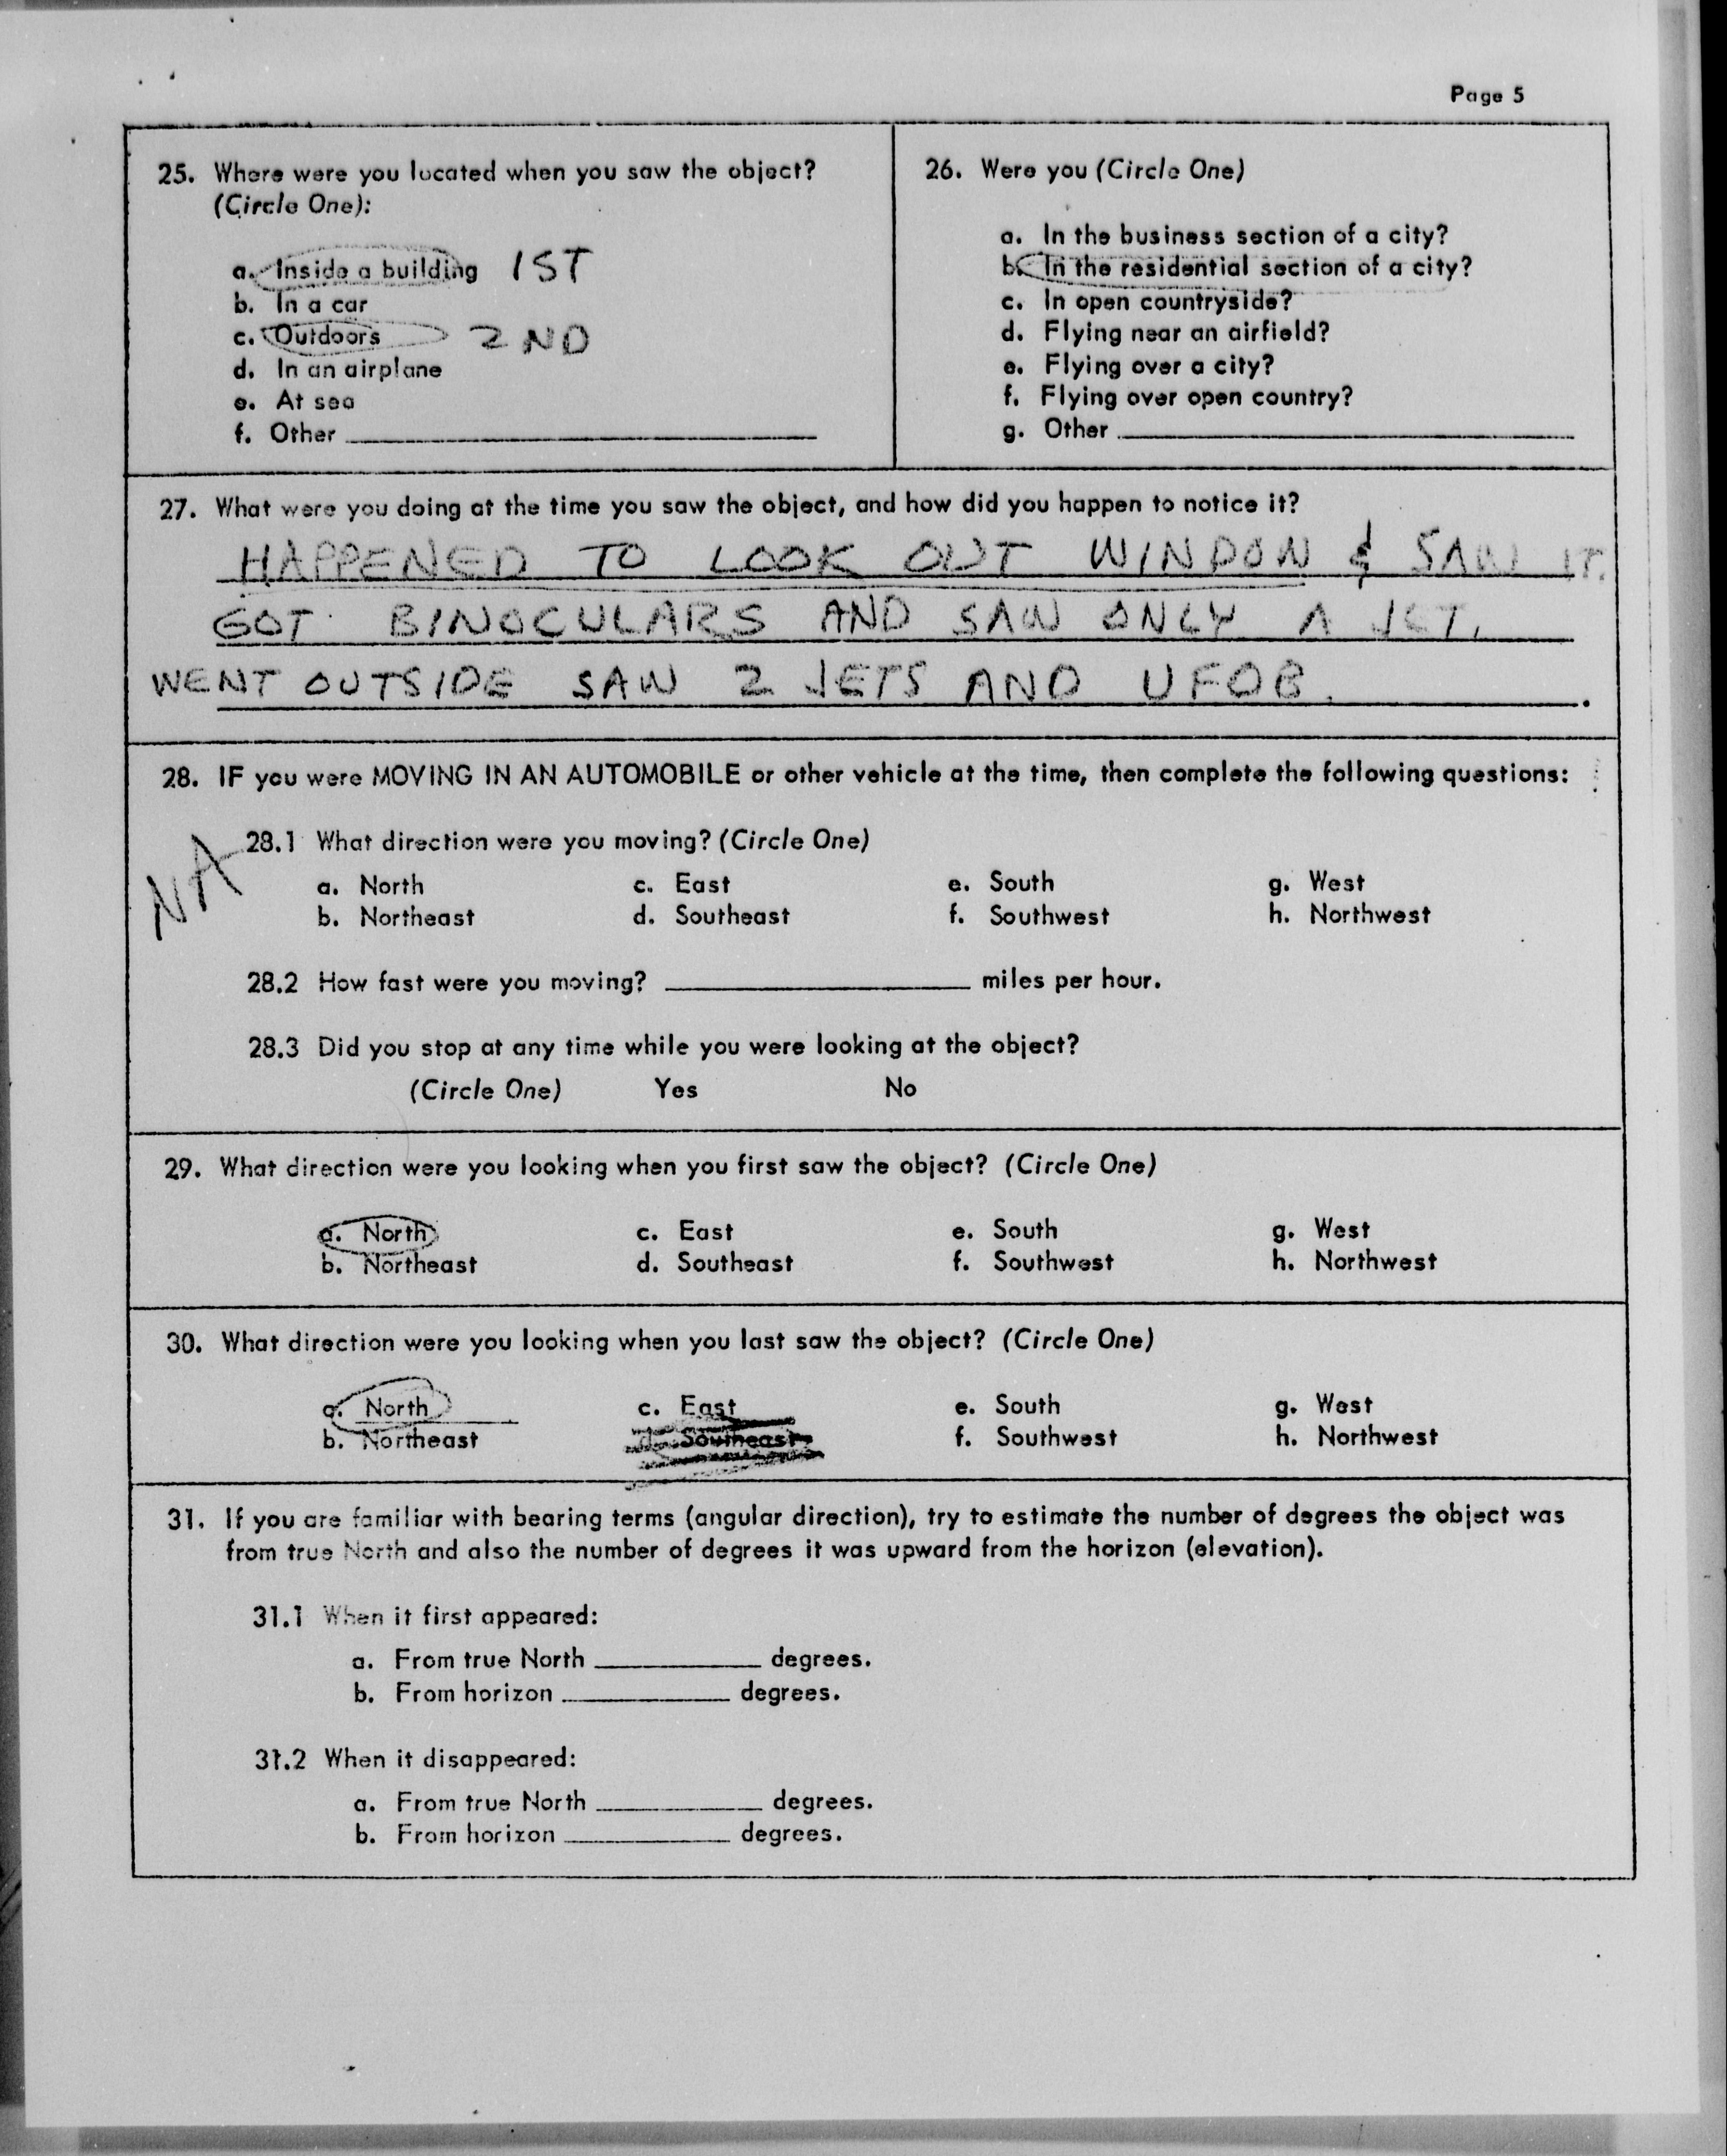 Page 5
25. Where were you located when you saw the object?
(Circle One):
a. Inside a building 1ST
b. In a car
c. Outdoors 2ND
d. In an airplane
e. At sea
f. Other
26. Were you (Circle One)
a. In the business section of a city?
b. In the residential section of a city?
c. In open countryside?
d. Flying near an airfield?
e. Flying over a city?
f. Flying over open country?
g. Other
27. What were you doing at the time you saw the object, and how did you happen to notice it?
HAPPENED TO LOOK OUT WINDOW & SAW IT.
GOT BINOCULARS AND SAW ONLY A JET,
WENT OUTSIDE SAW 2 JETS AND UFOB.
28. IF you were MOVING IN AN AUTOMOBILE or other vehicle at the time, then complete the following questions:
NA
28.1 What direction were you moving? (Circle One)
a. North c. East e. South g. West
b. Northeast d. Southeast f. Southwest h. Northwest
28.2 How fast were you moving? miles per hour.
28.3 Did you stop at any time while you were looking at the object?
(Circle One) Yes No
29. What direction were you looking when you first saw the object? (Circle One)
a. North c. East e. South g. West
b. Northeast d. Southeast f. Southwest h. Northwest
30. What direction were you looking when you last saw the object? (Circle One)
a. North c. East e. South g. West
b. Northeast d. Southeast f. Southwest h. Northwest
31. If you are familiar with bearing terms (angular direction), try to estimate the number of degrees the object was
from true North and also the number of degrees it was upward from the horizon (elevation).
31.1 When it first appeared:
a. From true North degrees.
b. From horizon degrees.
31.2 When it disappeared:
a. From true North degrees.
b. From horizon degrees.